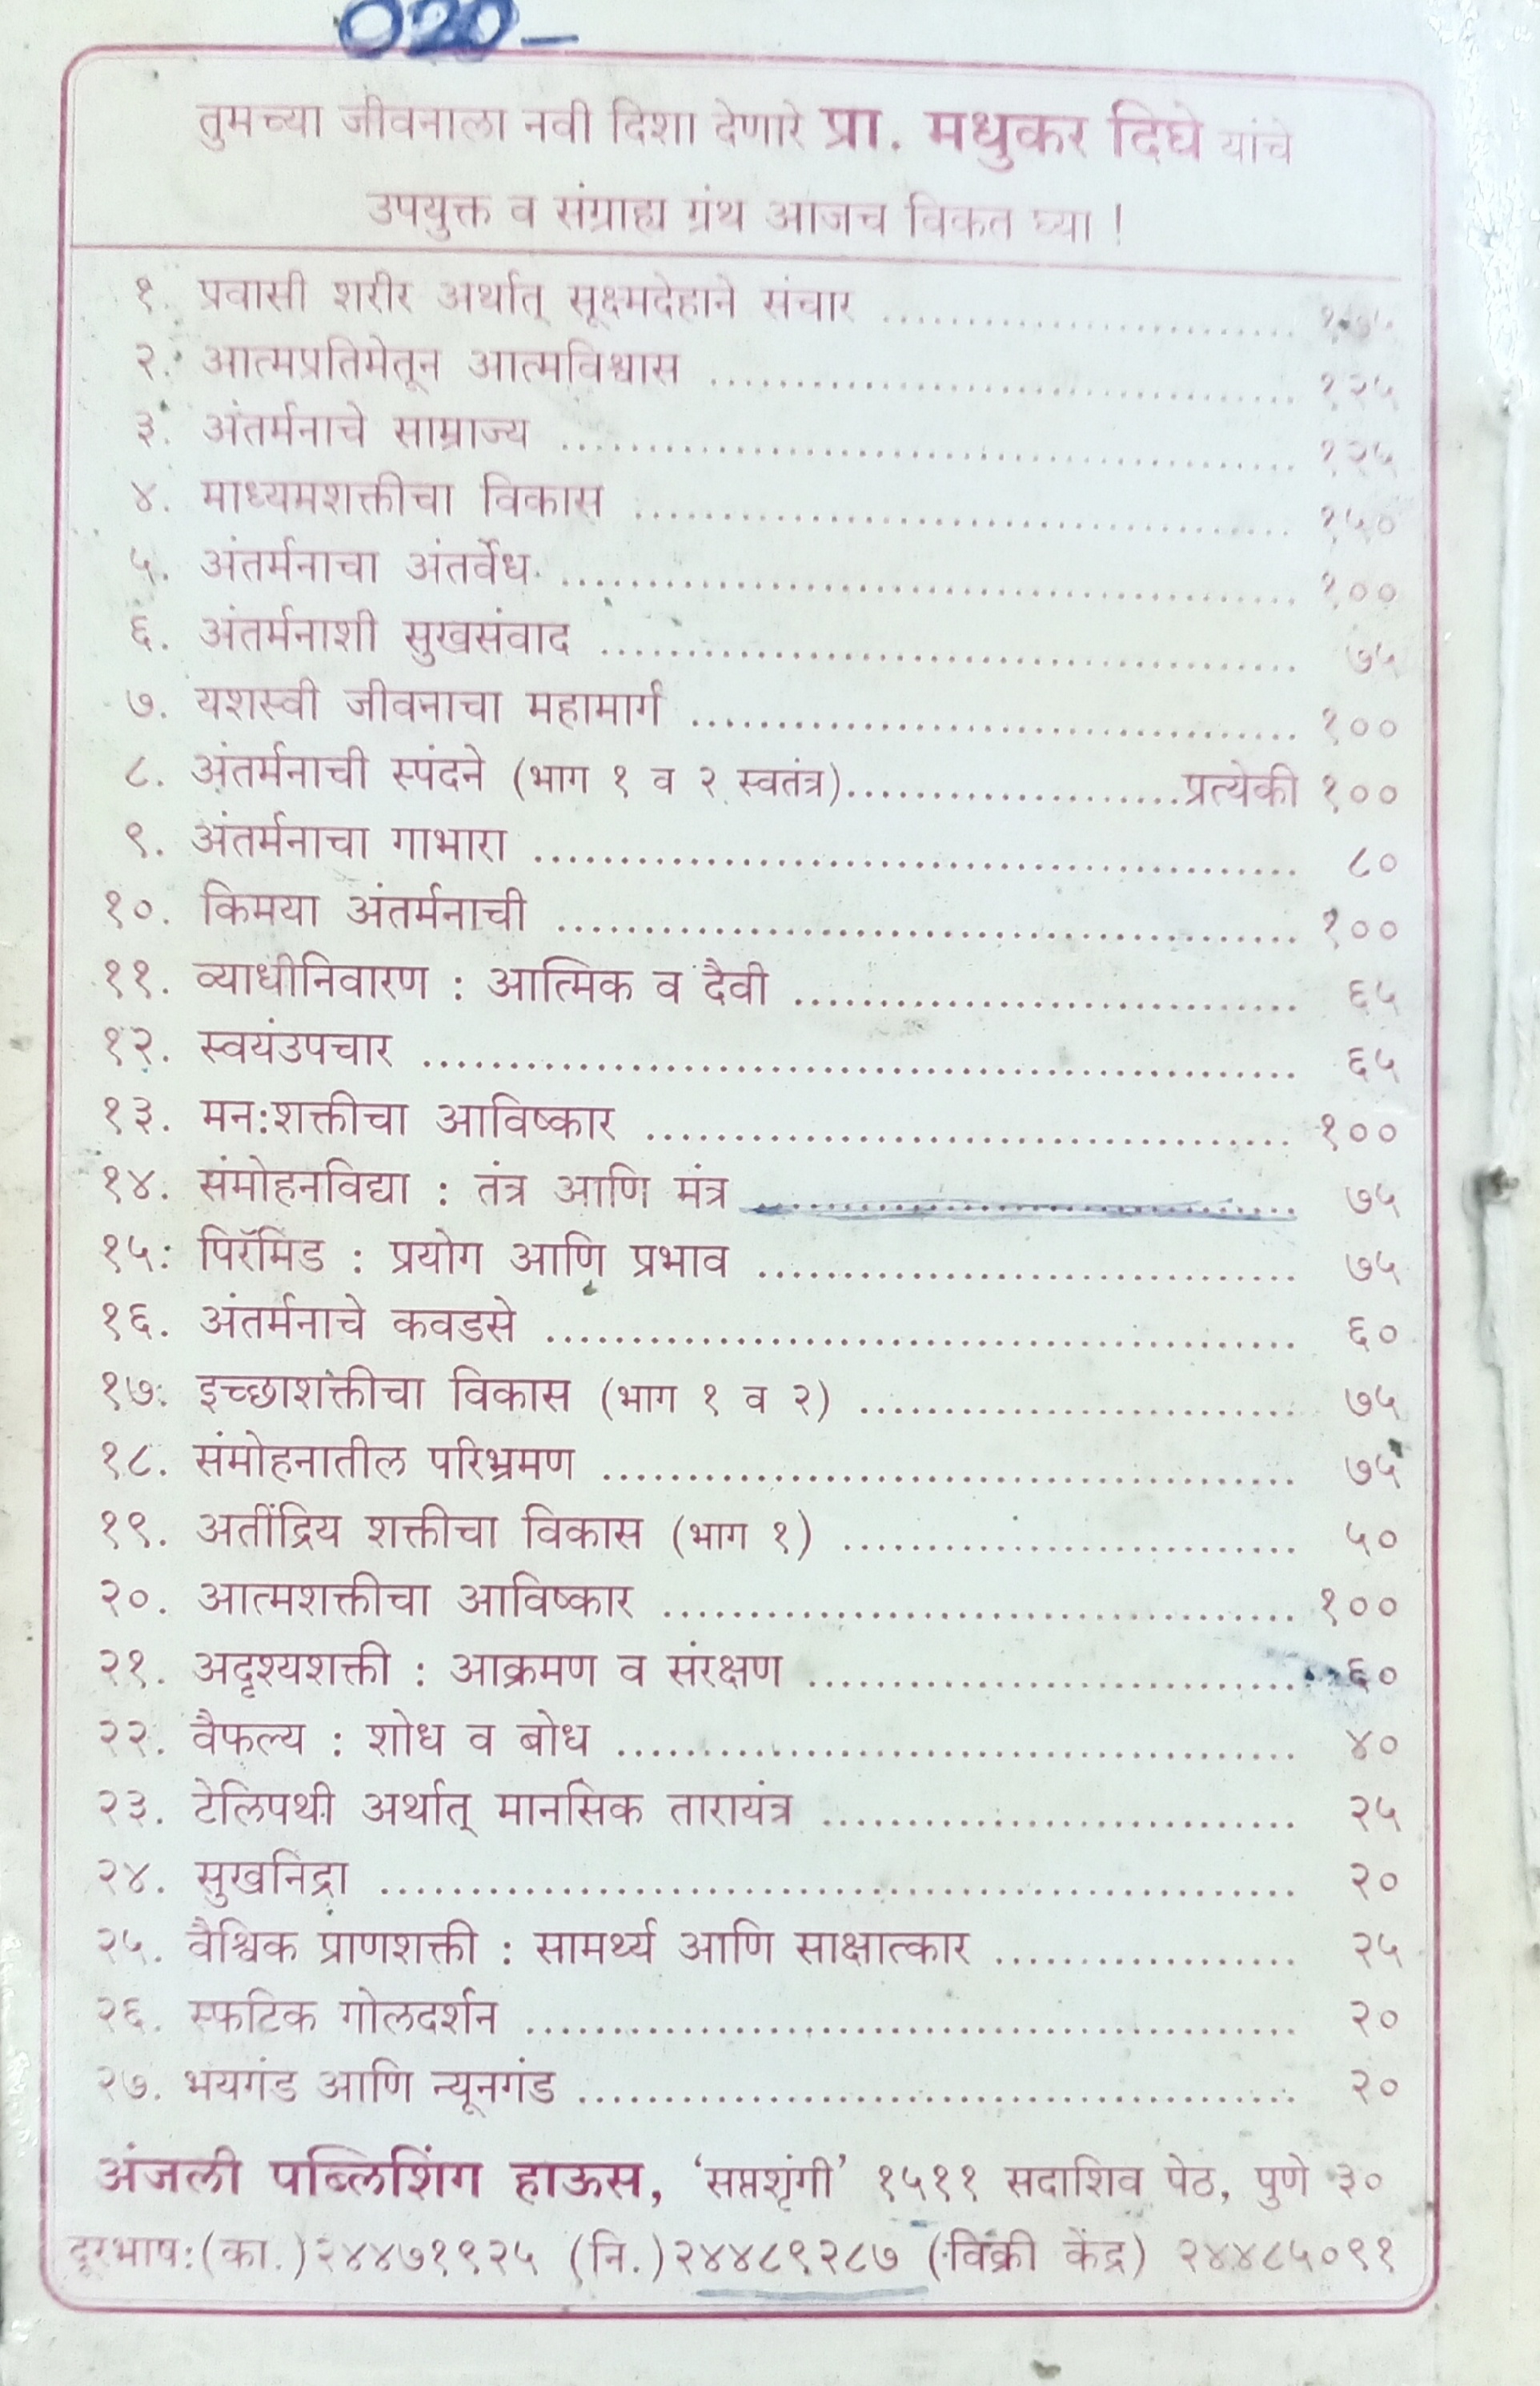 020-
तुमच्या जीवनाला नवी दिशा देणारे प्रा. मधुकर दिघे यांचे
उपयुक्त व संग्राह्य ग्रंथ आजच विकत घ्या !
१. प्रवासी शरीर अर्थात् सूक्ष्मदेहाने संचार ........................... १७५
२. आत्मप्रतिमेतून आत्मविश्वास ........................................ १२५
३. अंतर्मनाचे साम्राज्य .................................................. १२५
४. माध्यमशक्तीचा विकास ............................................. १५०
५. अंतर्मनाचा अंतर्वेध .................................................. १००
६. अंतर्मनाशी सुखसंवाद ............................................... ७५
७. यशस्वी जीवनाचा महामार्ग ......................................... १००
८. अंतर्मनाची स्पंदने (भाग १ व २ स्वतंत्र).......................प्रत्येकी १००
९. अंतर्मनाचा गाभारा .................................................... ८०
१०. किमया अंतर्मनाची .................................................. १००
११. व्याधीनिवारण : आत्मिक व दैवी .................................. ६५
१२. स्वयंउपचार ............................................................ ६५
१३. मन:शक्तीचा आविष्कार ............................................ १००
१४. संमोहनविद्या : तंत्र आणि मंत्र ..................................... ७५
१५. पिरॅमिड : प्रयोग आणि प्रभाव ..................................... ७५
१६. अंतर्मनाचे कवडसे .................................................... ६०
१७. इच्छाशक्तीचा विकास (भाग १ व २) .............................. ७५
१८. संमोहनातील परिभ्रमण ............................................... ७५
१९. अतींद्रिय शक्तीचा विकास (भाग १) ............................... ५०
२०. आत्मशक्तीचा आविष्कार ........................................... १००
२१. अदृश्यशक्ती : आक्रमण व संरक्षण ................................. ६०
२२. वैफल्य : शोध व बोध .............................................. ४०
२३. टेलिपथी अर्थात् मानसिक तारायंत्र ................................ २५
२४. सुखनिद्रा ............................................................... २०
२५. वैश्विक प्राणशक्ती : सामर्थ्य आणि साक्षात्कार .................... २५
२६. स्फटिक गोलदर्शन ..................................................... २०
२७. भयगंड आणि न्यूनगंड ................................................. २०
अंजली पब्लिशिंग हाऊस, ‘सप्तशृंगी’ १५११ सदाशिव पेठ, पुणे ३०
दूरभाष:(का.)२४४७१९२५ (नि.)२४४८९२८७ (विक्री केंद्र) २४४८५०९१